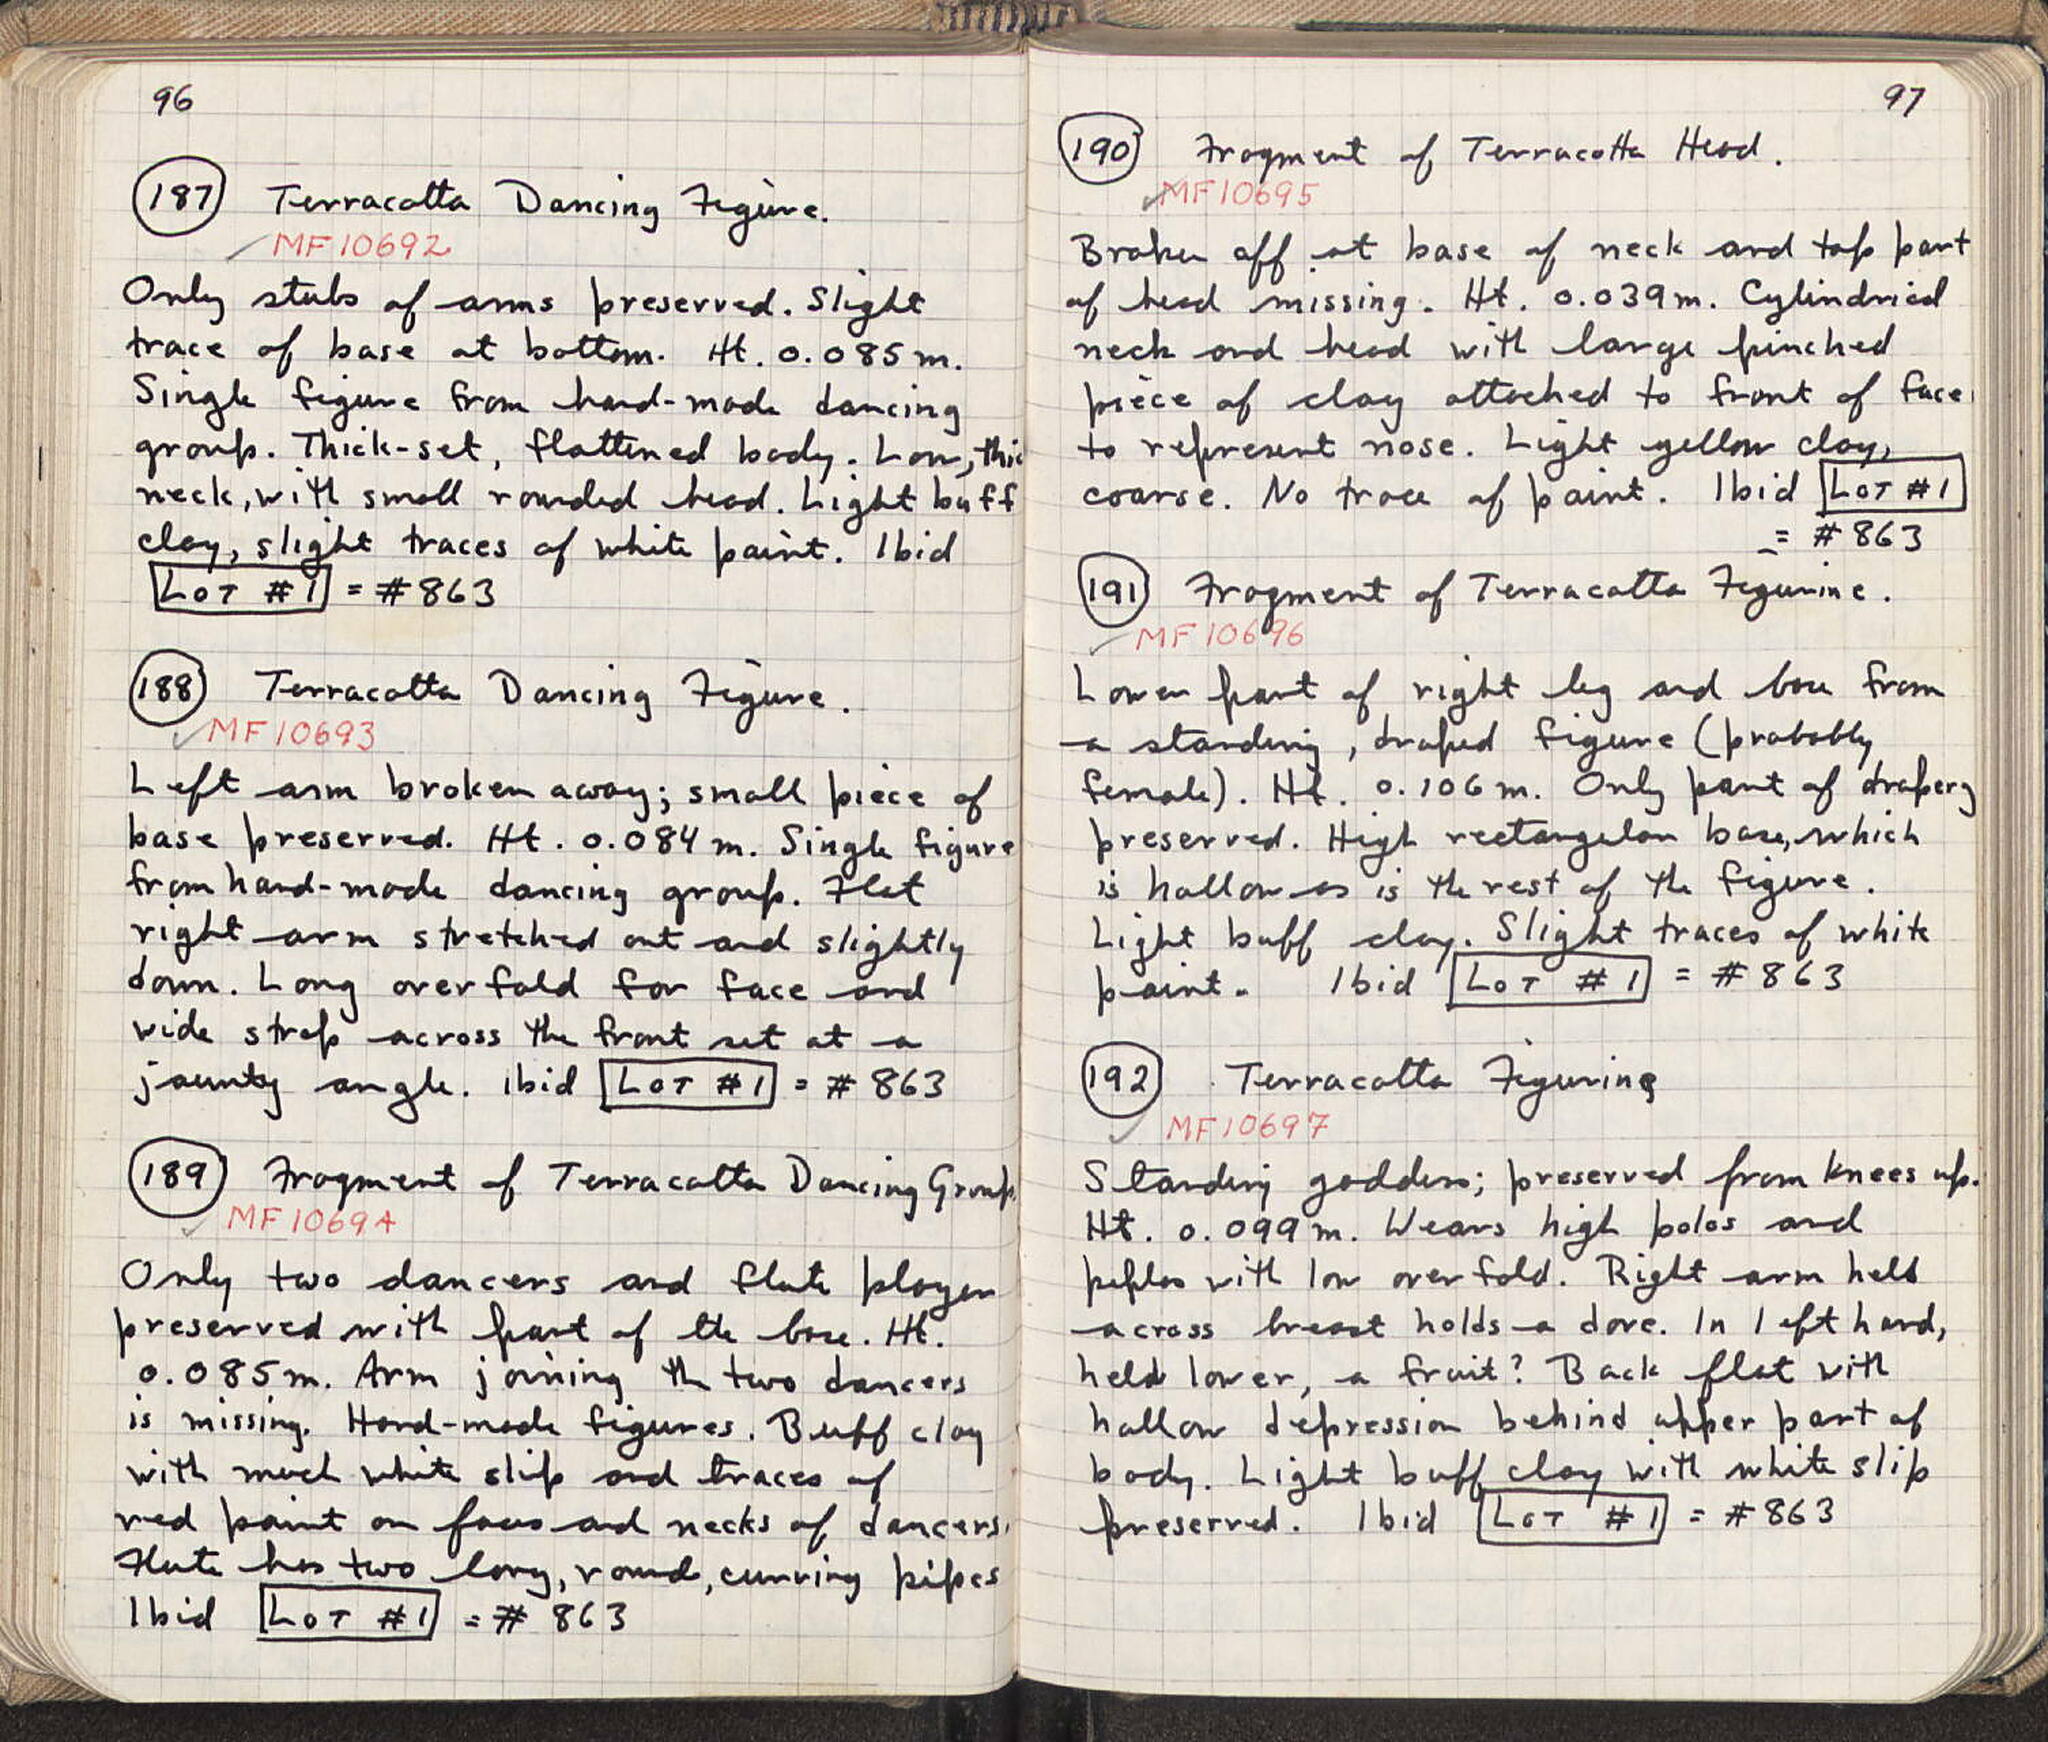 96
187 Terracotta Dancing Figure.
MF10692
Only stubs of arms preserved. Slight
trace of base at bottom. Ht. 0.085m.
Single figure from hand-made dancing
group. Thick-set, flattened body. Low, thic
neck, with small rounded head. Light buff
clay, slight traces of white paint. Ibid
LOT #1 = #863
188 Terracotta Dancing Figure.
MF10693
Left arm broken away; small piece of
base preserved. Ht. 0.084m. Single figure
from hand-made dancing group. Flat
right arm stretched out and slightly
down. Long overfold for face and
wide strap across the front set at a
jaunty angle. Ibid LOT #1 = #863
189 Fragment of Terracotta Dancing Group.
MF10694
Only two dancers and flute player
preserved with part of the base. Ht.
0.085m. Arm joining the two dancers
is missing. Hand-made figures. Buff clay
with much white slip and traces of
red paint on faces and necks of dancers.
Flute has two long, round, curving pipes
Ibid LOT #1 = #863
97
190 Fragment of Terracotta Head.
MF10695
Broken off at base of neck and top part
of head missing. Ht. 0.039m. Cylindrical
neck and head with large pinched
piece of clay attached to front of face
to represent nose. Light yellow clay,
coarse. No trace of paint. Ibid LOT #1
= #863
191 Fragment of Terracotta Figurine.
MF10696
Lower part of right leg and base from
a standing, draped figure (probably
female). Ht. 0.106m. Only part of drapery
preserved. High rectangular base, which
is hollow as is the rest of the figure.
Light buff clay. Slight traces of white
paint. Ibid LOT #1 = #863
192 Terracotta Figurine
MF10697
Standing goddess; preserved from knees up.
Ht. 0.099m. Wears high polos and
peplos with low overfold. Right arm held
across breast holds a dove. In left hand,
held lower, a fruit? Back flat with
hollow depression behind upper part of
body. Light buff clay with white slip
preserved. Ibid LOT #1 = #863